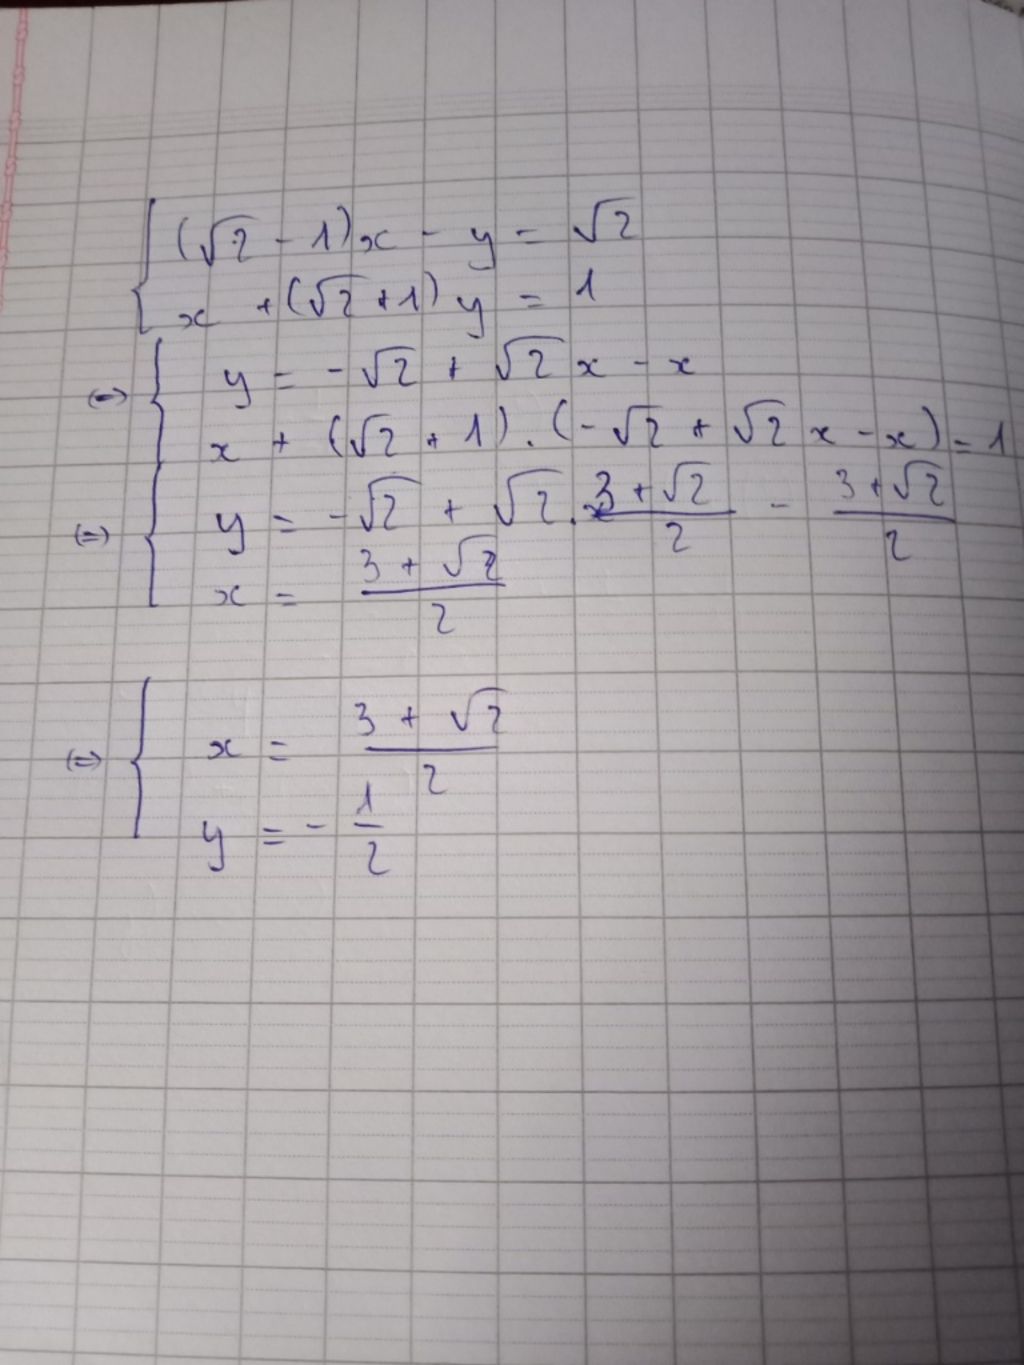 (√2 - 1)x - y = √2
x + (√2 + 1) y = 1
⇔ y = -√2 + √2 x - x
x + (√2 + 1) . (-√2 + √2 x - x) = 1
⇔ y = -√2 + √2 . (3 + √2)/2 - (3 + √2)/2
x = (3 + √2)/2
⇔ x = (3 + √2)/2
y = - 1/2